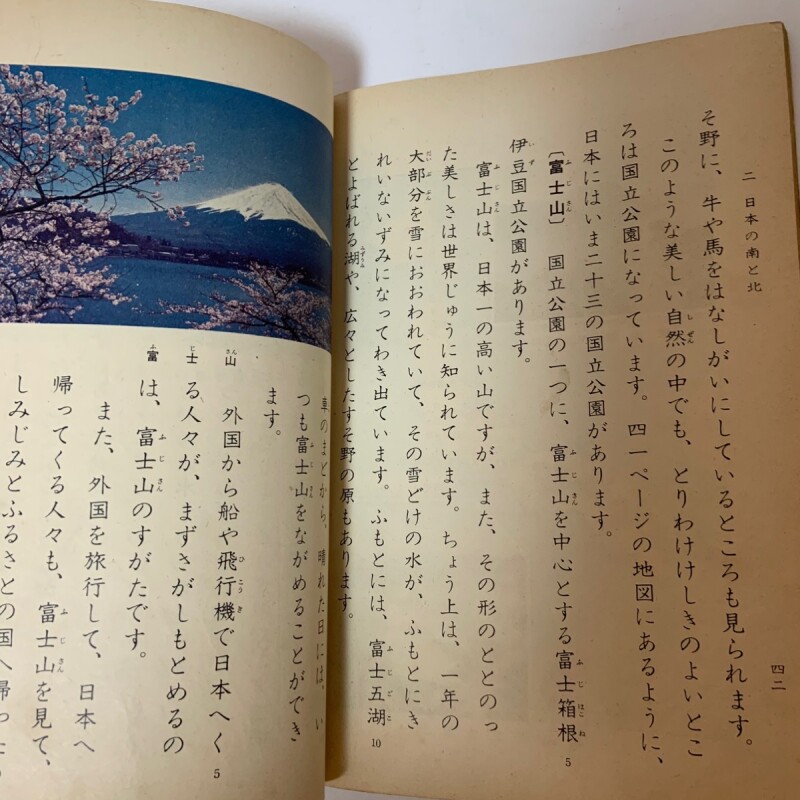 二 日本の南と北
四二
そ野に、牛や馬をはなしがいにしているところも見られます。
このような美しい自然の中でも、とりわけけしきのよいとこ
ろは国立公園になっています。四一ページの地図にあるように、
日本にはいま二十三の国立公園があります。
〔富士山〕 国立公園の一つに、富士山を中心とする富士箱根
伊豆国立公園があります。
富士山は、日本一の高い山ですが、また、その形のととのっ
た美しさは世界じゅうに知られています。ちょう上は、一年の
大部分を雪におおわれていて、その雪どけの水が、ふもとにき
れいないずみになってわき出ています。ふもとには、富士五湖
とよばれる湖や、広々としたすそ野の原もあります。
5
10
車のまどから、晴れた日には、い
つも富士山をながめることができ
ます。
外国から船や飛行機で日本へく
る人々が、まずさがしもとめるの
は、富士山のすがたです。
また、外国を旅行して、日本へ
帰ってくる人々も、富士山を見て、
しみじみとふるさとの国へ帰っ
山
士
富
5